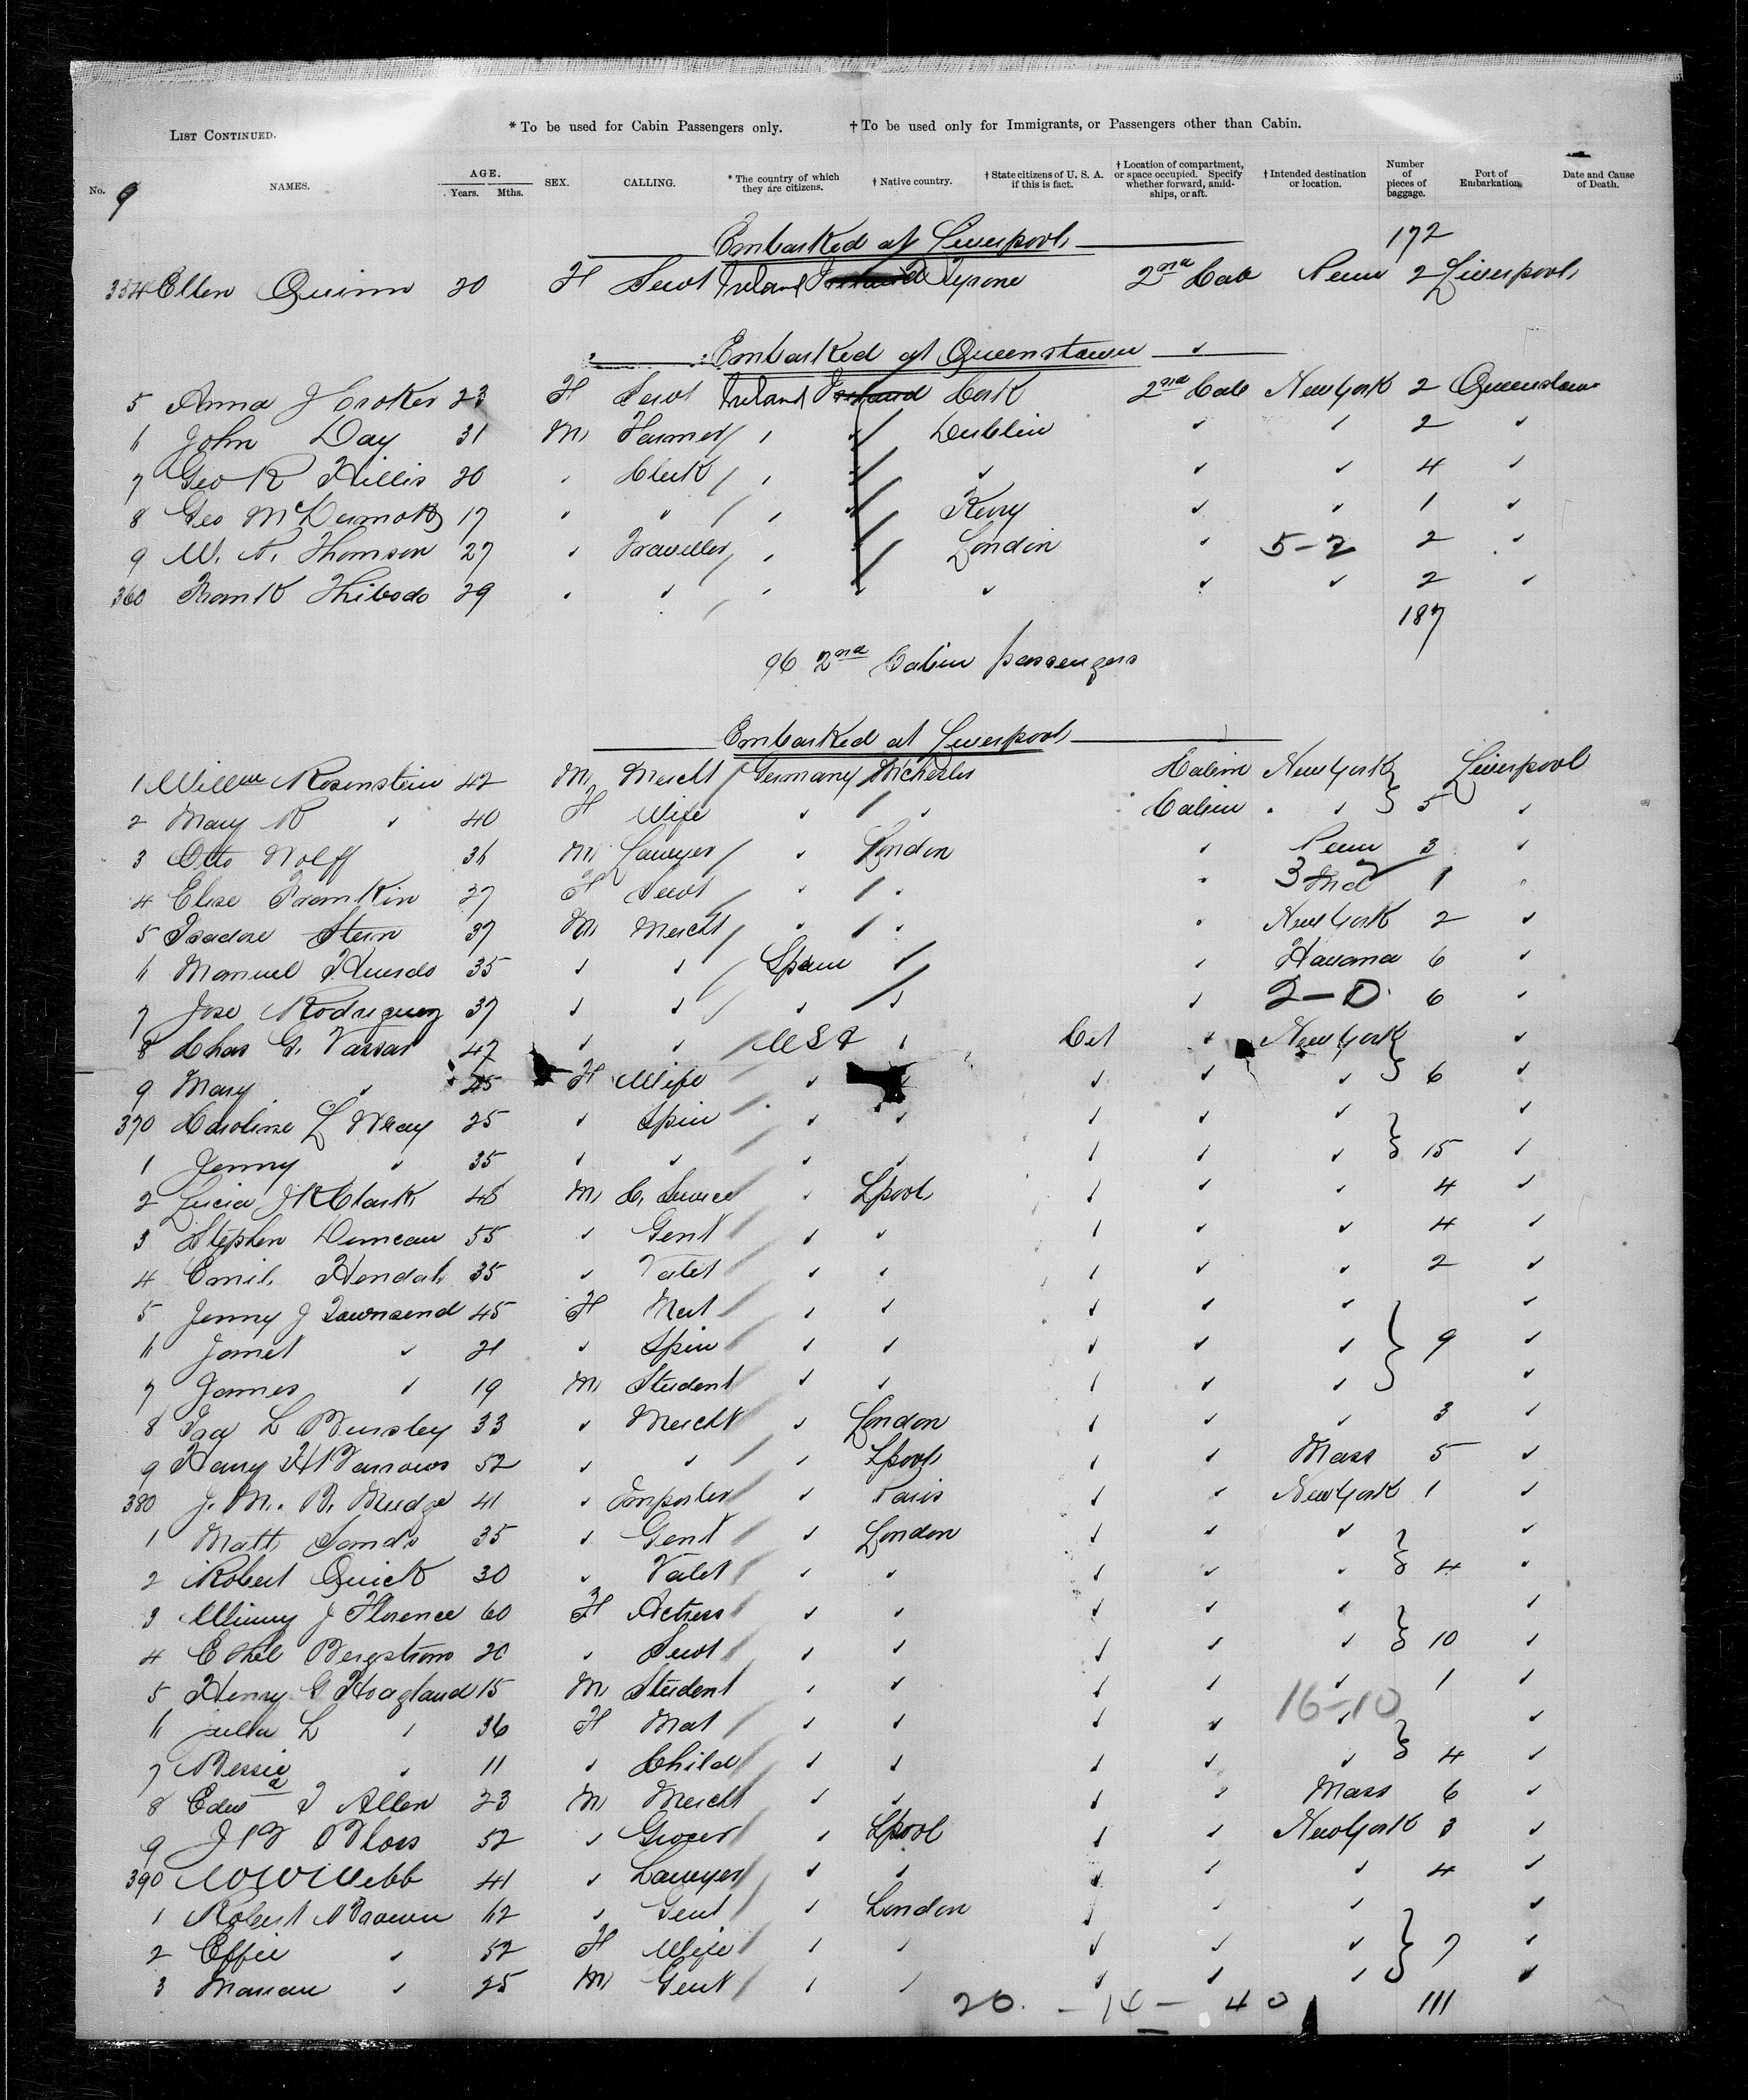 LIST CONTINUED. * To be used for Cabin Passengers only. † To be used only for Immigrants, or Passengers other than Cabin.
No. NAMES. AGE. Years. Mths. SEX. CALLING. * The country of which they are citizens. † Native country. † State citizens of U. S. A. if this is fact. † Location of compartment, or space occupied. Specify whether forward, amidships, or aft. † Intended destination or location. Number of pieces of baggage. Port of Embarkation. Date and Cause of Death.
9
Embarked at Liverpool 172
354 Ellen Quinn 20 F Servt Ireland Ireland Tyrone 2nd Cab Penn 2 Liverpool
Embarked at Queenstown ✓
5 Anna J Croker 23 F Servt Ireland Ireland Cork 2nd Cab New York 2 Queenstown
6 John Day 31 M Farmer Dublin ✓ 2 ✓
7 Geo R Hillis 20 Clerk ✓ ✓ ✓ 4 ✓
8 Geo McDermott 17 Kerry ✓ ✓ 1 ✓
9 W. N. Thomson 27 Traveller London ✓ 5-2 2 ✓
360 Frank Thibodo 29 ✓ ✓ ✓ ✓ 2 ✓
187
96 2nd Cabin passengers
Embarked at Liverpool
1 Willm Rosenstein 42 M Mercht Germany Cabin New York Liverpool
2 Mary R ✓ 40 F Wife ✓ Cabin ✓ 5 ✓
3 Otto Wolff 36 M Lawyer ✓ London ✓ Penn 3 ✓
4 Elise Frankin 27 F Servt 3 Ind 1
5 Isadore Stern 37 M Mercht New York 2 ✓
6 Manuel Huerdo 35 ✓ ✓ Spain ✓ ✓ Havana 6 ✓
7 Jose Rodriguez 37 ✓ ✓ ✓ ✓ ✓ 2-0 6 ✓
8 Chas G. Vassar 47 ✓ ✓ USA Cit ✓ New York ✓
9 Mary ✓ 45 F Wife ✓ ✓ ✓ ✓ 6 ✓
370 Caroline L Wray 25 ✓ Spin ✓ ✓ ✓ ✓ ✓ ✓
1 Jenny ✓ 35 ✓ ✓ ✓ ✓ ✓ ✓ ✓ 15 ✓
2 Lucia J K Clark 45 M C. Service Lpool ✓ ✓ ✓ 4 ✓
3 Stephen Duncan 55 ✓ Gent ✓ ✓ ✓ ✓ ✓ 4 ✓
4 Emil Hendah 35 ✓ Valet ✓ ✓ ✓ ✓ ✓ 2 ✓
5 Jenny J Townsend 45 F Mat ✓ ✓ ✓ ✓ ✓ ✓
6 Janet ✓ 21 ✓ Spin ✓ ✓ ✓ ✓ ✓ 9 ✓
7 James ✓ 19 M Student ✓ ✓ ✓ ✓ ✓ ✓
8 L Bursley 33 ✓ Mercht ✓ London ✓ ✓ ✓ 3 ✓
9 Harry H Barrows 52 ✓ ✓ ✓ Lpool ✓ ✓ Mass 5 ✓
380 J. M. B. Mudge 41 ✓ Importer ✓ Paris ✓ ✓ New York 1 ✓
1 Matt Sands 35 ✓ Gent ✓ London ✓ ✓ ✓ ✓
2 Robert Quick 30 ✓ Valet ✓ ✓ ✓ ✓ ✓ 4 ✓
3 Winny J Florence 60 F Actress ✓ ✓ ✓ ✓ ✓ ✓
4 Ethel Bergstrom 20 ✓ Servt ✓ ✓ ✓ ✓ ✓ 10 ✓
5 Henry G Hoagland 15 M Student ✓ ✓ ✓ ✓ ✓ 1 ✓
16-10
6 Julia L ✓ 36 F Mat ✓ ✓ ✓ ✓ ✓ ✓
7 Bessie ✓ 11 ✓ Child ✓ ✓ ✓ ✓ ✓ 4 ✓
8 Edwd Allen 23 M Mercht ✓ ✓ ✓ ✓ Mass 6 ✓
9 J B Bloss 52 ✓ Grocer ✓ Lpool ✓ ✓ New York 3 ✓
390 W W Webb 41 ✓ Lawyer ✓ ✓ ✓ ✓ ✓ 4 ✓
1 Robert Brown 62 ✓ Gent ✓ London ✓ ✓ ✓ ✓
2 Effie ✓ 52 F Wife ✓ ✓ ✓ ✓ ✓ 7 ✓
3 Marian ✓ 25 M Gent ✓ ✓ ✓ ✓ ✓ ✓
20. - 14 - 40 111